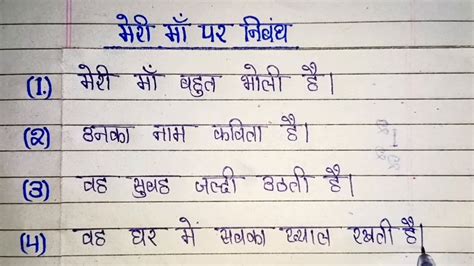 मेरी माँ पर निबंध
(1.) मेरी माँ बहुत भोली है।
(2) उनका नाम कविता है।
(3) वह सुबह जल्दी उठती है।
(4) वह घर में सबका ख्याल रखती है।